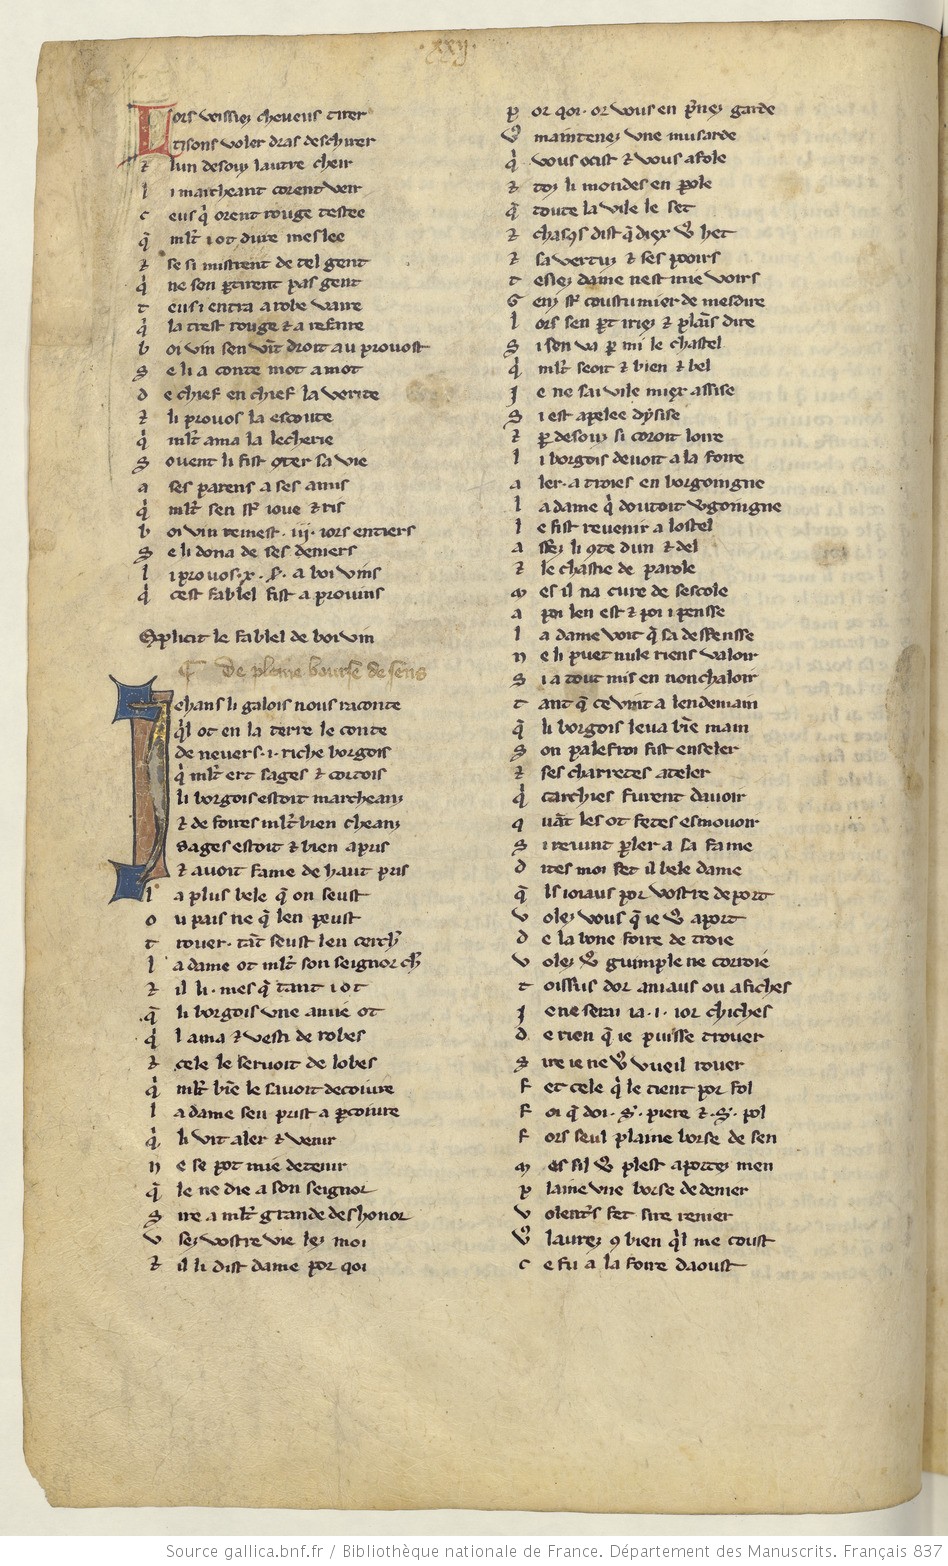 .xxij.
Lors veissiez cheveus tirer
tisons voler dras deschirer
⁊ lun desouz lautre cheir
l i marcheant corent veir
c eus q̇ orent rouge testee
q̄ ml̃t i ot dure meslee
⁊ se si mistrent de tel gent
q̇ ne son ꝑtirent pas gent
t eus i entra a robe vaire
q̇ la trest rouge ⁊ a refere
b oivin sen vĩt droit au provost
S e li a conte mot a mot
d e chief en chief la verite
⁊ li provos la escoute
q̇ ml̃t ama la lecherie
S ovent li fist ꝯter sa vie
a ses parens a ses amis
q̇ ml̃t sen st̃ ioue ⁊ ris
b oivin remest .iij. iors entiers
S e li dona de ses deniers
l i provos .x. s̃. a boivins
q̇ cest fablel fist a provins
Explicit le fablel de boivin
De pleine bourse de sens
Iehans li galois nous raconte
q̇l ot en la terre le conte
de nevers .i. riche borgois
q̇ ml̃t ert sages ⁊ cortois
li borgois estoit marcheanz
⁊ de foires ml̃t bien cheanz
sages estoit ⁊ bien apris
⁊ avoit fame de haut pris
l a plus bele q̄ on seust
o u pais ne q̄ len peust
t rover. tãt seust len cerch̃
l a dame ot ml̃t son seignor ch̃
⁊ il li. mes q̄ tant i ot
q̄ li borgois une amie ot
q̇ l ama ⁊ vesti de robes
⁊ cele le servoit de lobes
q̇ ml̃t bñe le savoit decoivre
l a dame sen prist a ꝑcoivre
q̇ li vit aler ⁊ venir
n e se pot mie detenir
q̄ le ne die a son seignor
S ire a ml̃t grande deshonor
v sez vostre vie lez moi
⁊ il li dist dame por qoi
p or qoi. or vous en p̃nez garde
v̾ maintenez une musarde
q̇ vous ocist ⁊ vous afole
⁊ toz li mondes en ꝑole
q̄ toute la vile le set
⁊ chascꝰ dist q̄ diex v̾ het
⁊ sa vertuz ⁊ ses pooirs
t esiez dame nest mie voirs
G enz st̃ coustumier de mesdire
l ors sen ꝑt iriez ⁊ plaĩs dire
S i sen va ꝑ mi le chastel
q̇ ml̃t seoit ⁊ bien ⁊ bel
J e ne sai vile miex assise
S i est apelee dysise
⁊ ꝑ desouz si coroit loire
l i borgois devoit a la foire
a ler. a troies en borgoingne
l a dame q̇ doutoit v̾goingne
l e fist revenir a lostel
a ssez li ꝯte dun ⁊ del
⁊ le chastie de parole
m es il na cure de sescole
a poi len est ⁊ poi i pensse
l a dame voit q̄ sa deffensse
n e li puet nule riens valoir
S i a tout mis en nonchaloir
t ant q̄ ce vint a lendemain
q̄ li borgois leva bñe main
S on palefroi fist enseler
⁊ ses charretes ateler
q̇ carchies furent davoir
q uãt les ot fetes esmovoir
S i revint ꝑler a sa fame
d ites moi fet il bele dame
q̄ ls ioiaus por vostre deport
v olez vous q̄ ie v̾ aport
d e la bone foire de troie
v olez v̾ guimple ne corroie
t oissus dor aniaus ou afiches
J e ne serai ia .i. ior chiches
d e rien q̄ ie puisse trover
S ire ie ne v̾ vueil rover
f et cele q̇ le tient por fol
f oi q̄ doi .s̃. piere ⁊ .s̃. pol
f ors seul plaine borse de sen
m es sil v̾ plest aportez men
p laine une borse de denier
v olentr̃s fet sire renier
v̾ laurez ꝯ bien q̇l me coust
c e fu a la foire daoust
Source gallica.bnf.fr / Bibliothèque nationale de France. Département des Manuscrits. Français 837